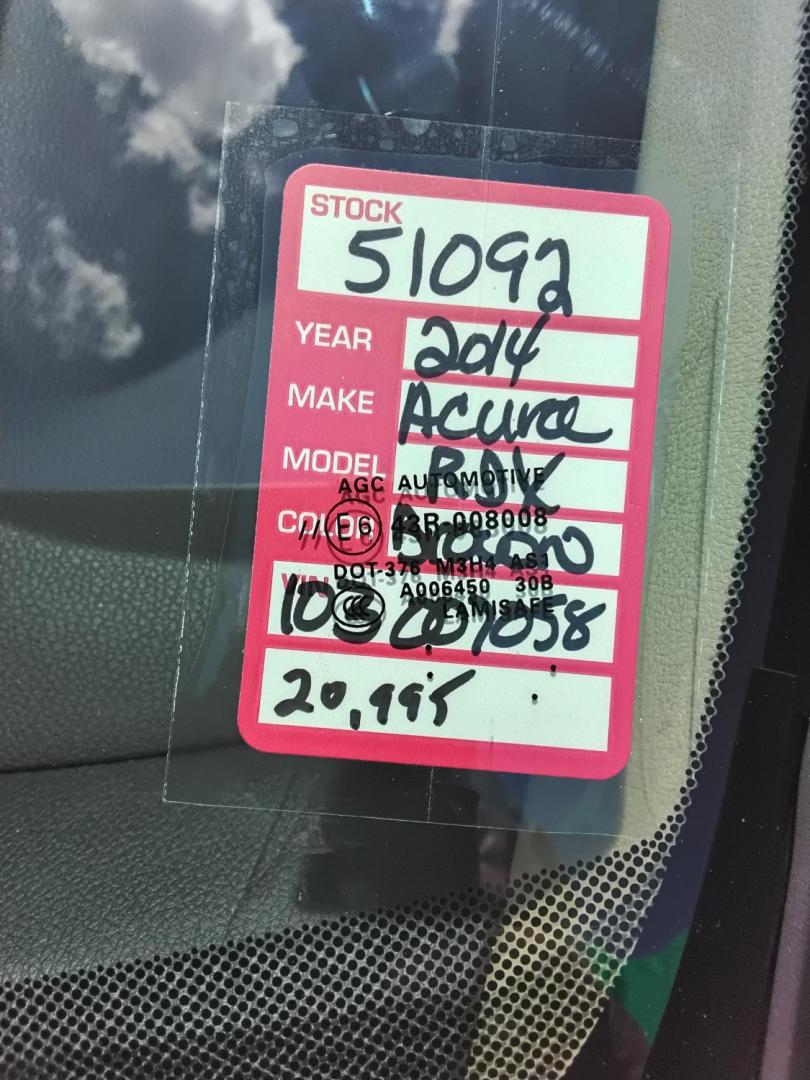 STOCK
51092
YEAR 2014
MAKE Acura
MODEL RDX
AGC AUTOMOTIVE
COLOR
E6 43R-008008
DOT-376 M3H4 AS1
A006450 30B
LAMISAFE
VIN
20,995